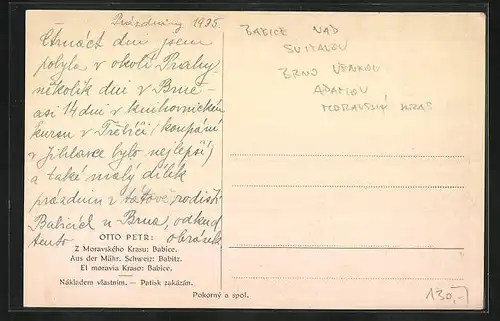 Prázdniny 1935.
Čtrnáct dní jsem
pobyla v okolí Prahy,
několik dní v Brně –
asi 14 dní v knihovnickém
kursu v Třebíči (koupání
v Jihlavce bylo nejlepší)
a také malý dílek
prázdnin v tátově rodišti
Babicích u Brna, odkud
tento obrázek
OTTO PETR:
Z Moravského Krasu: Babice.
Aus der Mähr. Schweiz: Babitz.
El moravia Kraso: Babice.
Nákladem vlastním. — Patisk zakázán.
Pokorný a spol.
BABICE NAD
SVITAVOU
BRNO VENKOV
ADAMOV
MORAVSKÝ KRAS
130,-